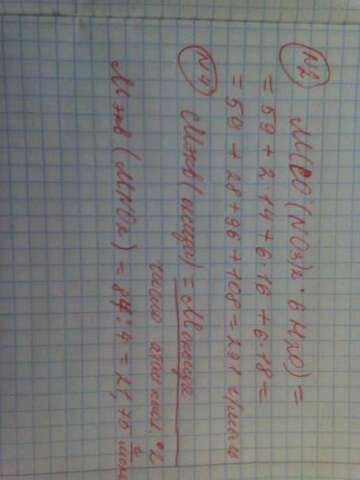 №2 M(CO(NO3)2 · 6H2O) =
= 59 + 2·14 + 6·16 + 6·18 =
= 59 + 28 + 96 + 108 = 291 г/моль
№4 Mэкв(оксида) = Mоксида
число атомов кисл. · 2
Mэкв(MnO2) = 87 : 4 = 21,75 г/моль